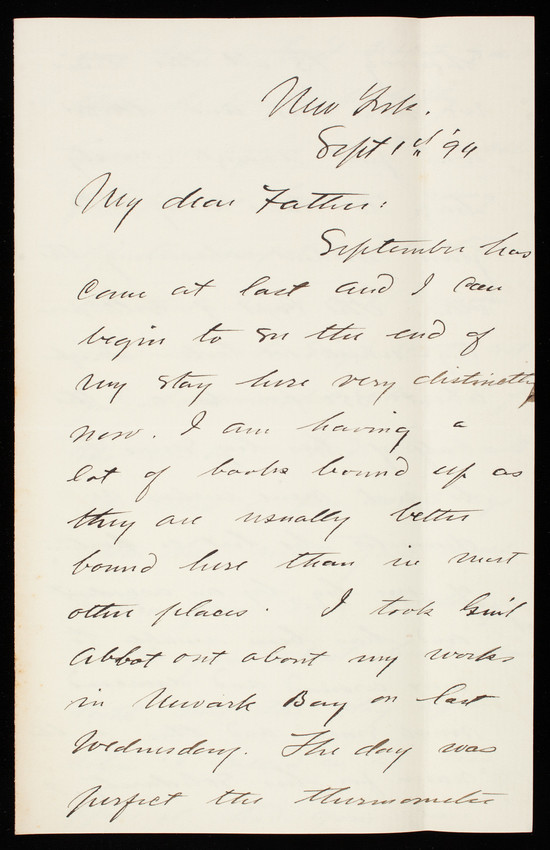 New York.
Sept 1st '94
My dear Father:
September has
come at last and I can
begin to see the end of
my stay here very distinctly
now. I am having a
lot of books bound up as
they are usually better
bound here than in most
other places. I took Gen'l
Abbot out about my works
in Newark Bay on last
Wednesday. The day was
perfect the thermometer